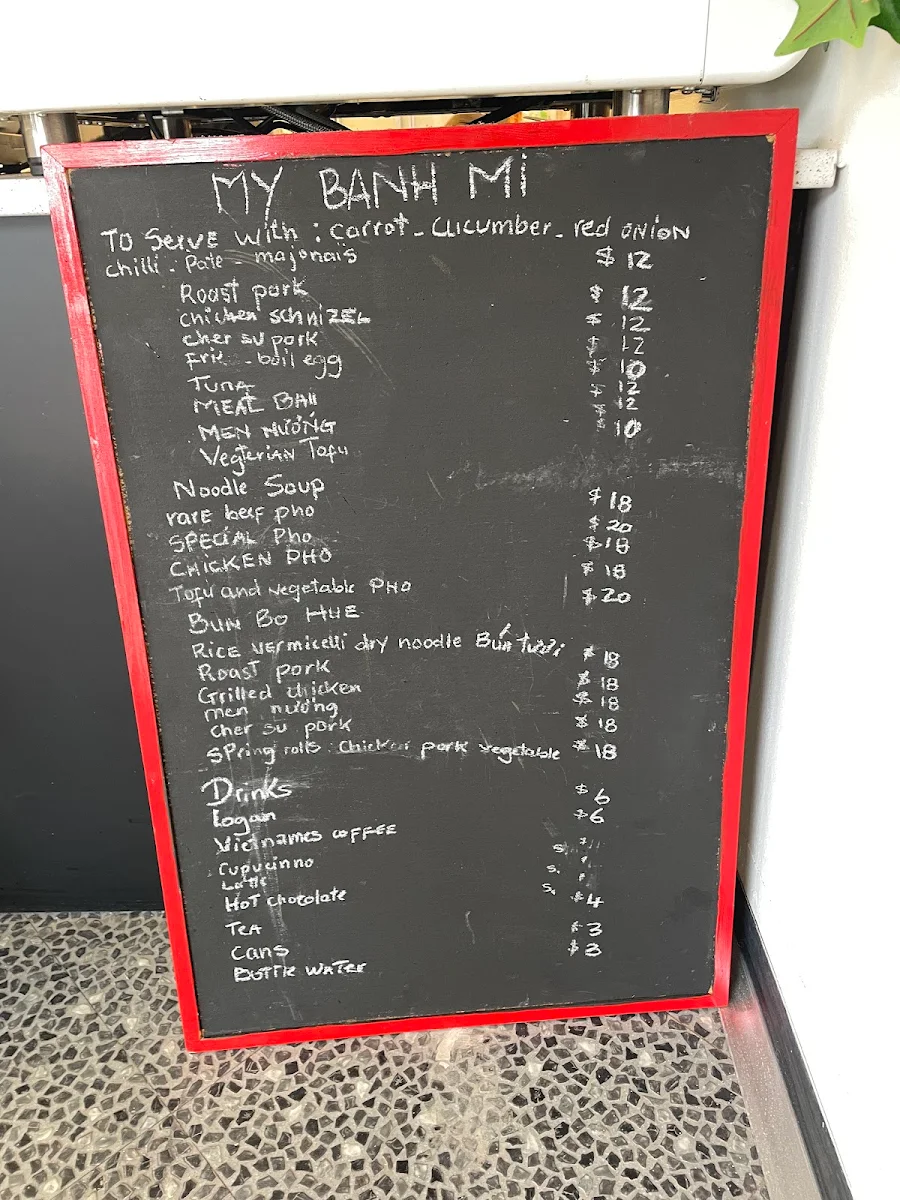 MY BANH Mi
TO SERVE WITH : carrot - cucumber - red ONION
chilli . Pate - majonais $ 12
Roast pork $ 12
chicken schnizel $ 12
cher su pork $ 12
Frie - boil egg $ 10
TUNA $ 12
MEAT BAll $ 12
MEN NƯỚNG $ 10
Vegterian Tofu
Noodle Soup
rare beef pho $ 18
SPECIAL Pho $ 20
CHICKEN PHO $ 18
Tofu and vegetable PHO $ 18
BUN BO HUE $ 20
RICE vermicelli dry noodle Bún tươi
Roast pork $ 18
Grilled chicken $ 18
men nướng $ 18
cher su pork $ 18
spring rolls : chicken pork vegetable $ 18
Drinks
Logan $ 6
Vietnames coffee $ 6
Cupucinno S.
Latte S.
HoT chocolate S.
TEA $ 4
Cans $ 3
BOTTLE WATER $ 3